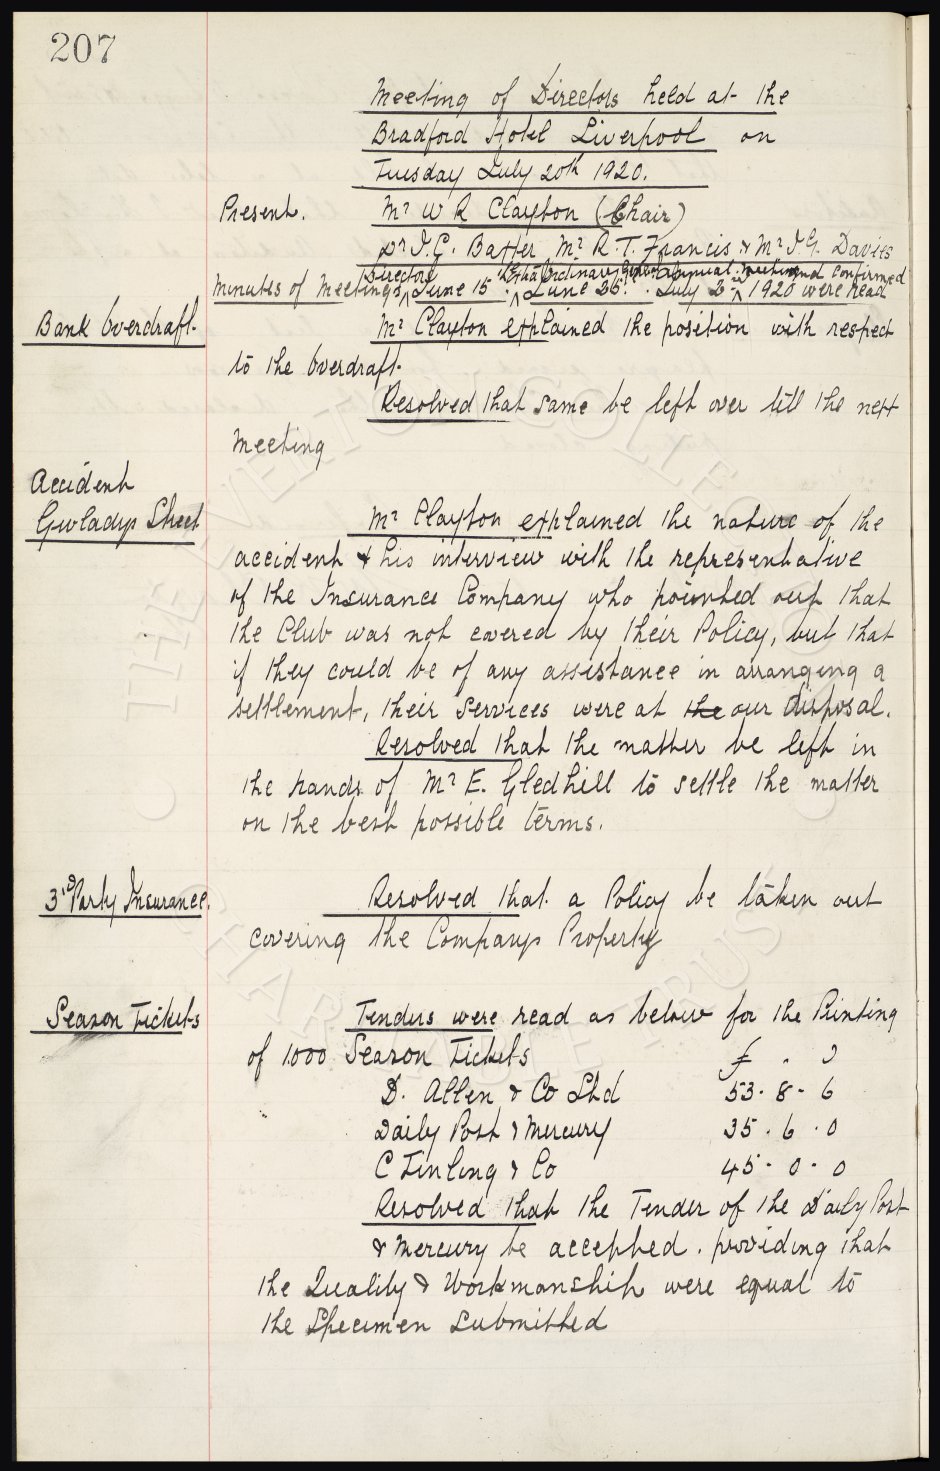 207
Meeting of Directors held at the
Bradford Hotel Liverpool on
Tuesday July 20th 1920.
Present. Mr W R Clayton (Chair)
Dr J.C. Baxter Mr R.T. Francis & Mr J G. Davies
Directors Extra Ordinary General Annual Meeting and confirmed
Minutes of Meetings June 15th June 25th. July 2nd 1920 were read
Bank Overdraft. Mr Clayton explained the position with respect
to the Overdraft.
Resolved that same be left over till the next
meeting
Accident
Gwladys Street Mr Clayton explained the nature of the
accident & his interview with the representative
of the Insurance Company who pointed out that
the Club was not covered by their Policy, but that
if they could be of any assistance in arranging a
settlement, their services were at the our disposal.
Resolved that the matter be left in
the hands of Mr E. Gledhill to settle the matter
on the best possible terms.
3rd Party Insurance. Resolved that a Policy be taken out
covering the Companys Property
Season Tickets Tenders were read as below for the Printing
of 1000 Season Tickets £
D. Allen & Co Ltd 53 . 8 . 6
Daily Post & Mercury 35 . 6 . 0
C Tinling & Co 45 . 0 . 0
Resolved that the Tender of the Daily Post
& Mercury be accepted. providing that
the Quality & Workmanship were equal to
the Specimen submitted
THE EVERTON COLLECTION
CHARITABLE TRUST